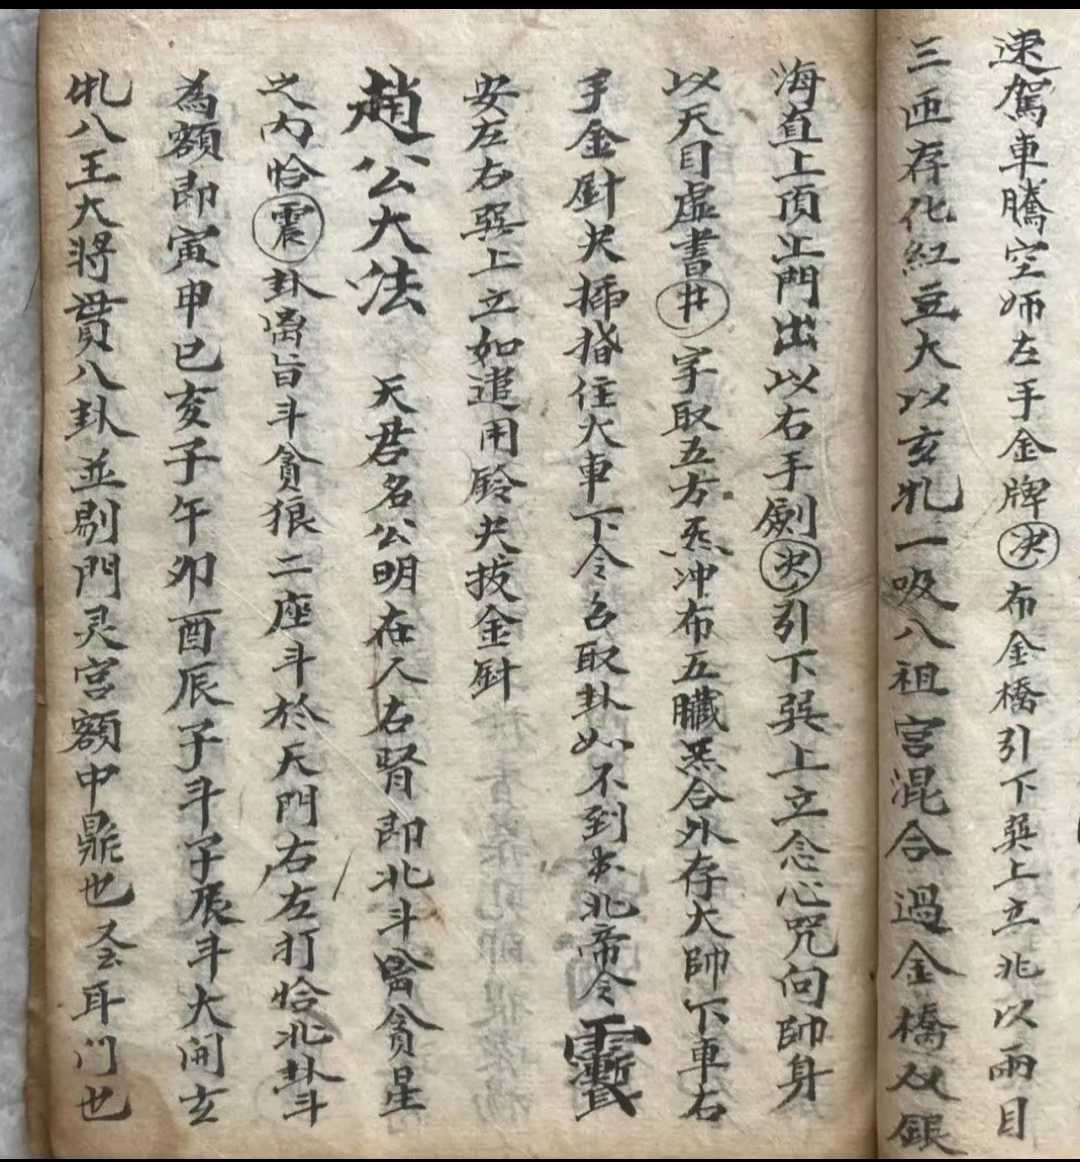 速駕車騰空师左手金牌决布金橋引下巽上立兆以兩目
三匝存化紅豆大以玄牝一吸八祖宫混合過金橋双銀
海直上頂上門出以右手劍决引下巽上立念心咒问帥身
以天目虚書井字取五方炁冲布五臟炁合外存大帥下車右
手金針夹插揩住大車下令召取卦如不到书北帝令
安左右巽上立如遣用鈴夹拔金針
趙公大法 天君名公明在人右腎即北斗貪星
之内恰震卦旨斗貪狼二座斗於天門右左打恰北卦斗
為額即寅申巳亥子午卯酉辰子斗子辰斗大開玄
牝八王大将貫八卦並剔門灵宫額中鼎也耳门也